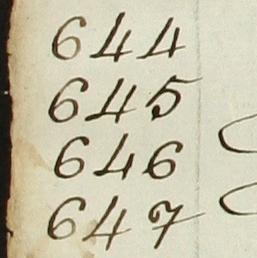 644
645
646
647